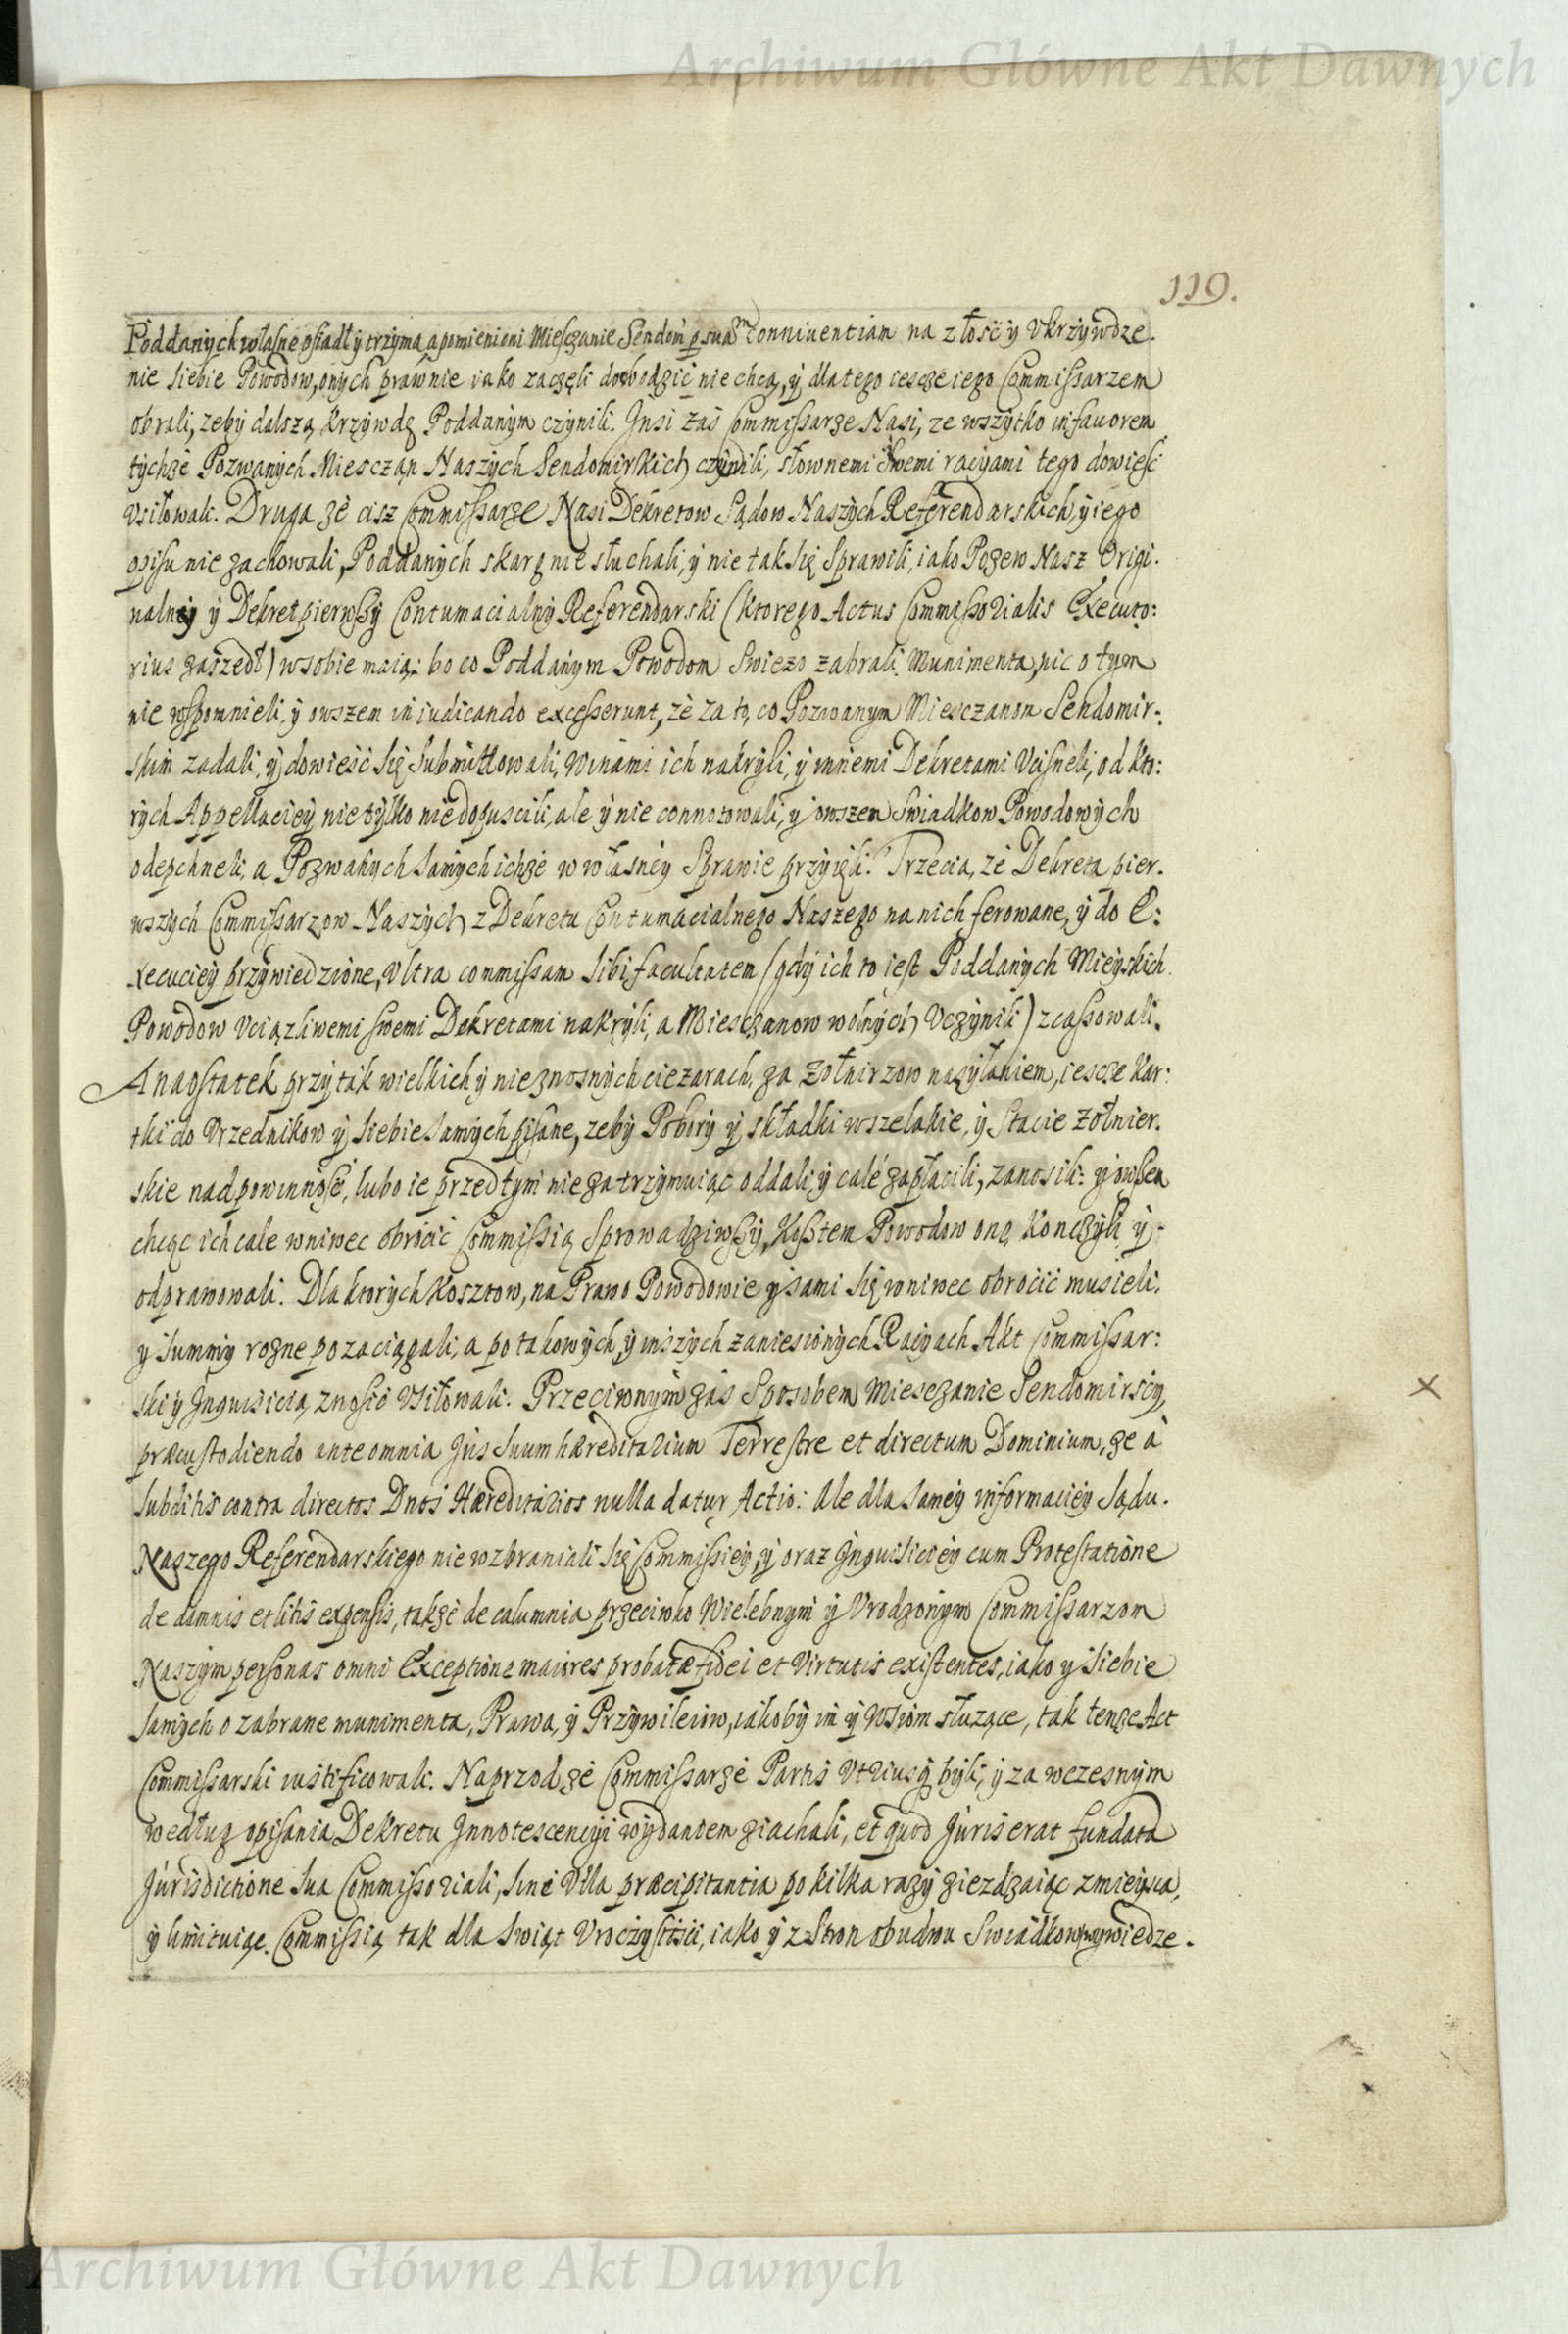 Archiwum Główne Akt Dawnych
119.
Poddanych własne osiadł y trzyma, a pomienieni Miesczanie Sendom̃ p suam conniventiam na złość y Vkrzywdze.
nie siebie Powodow, onych prawnie iako zaczęli dochodzić nie chcą, y dlatego iescze iego Commissarzem
obrali, zeby dalszą krzywdę Poddanym czynili. Jnsi zaś Commissarze Nasi, ze wszytko in fauorem
tychże Pozwanych Miesczan Naszych Sendomirskich czynili, słownemi swemi racyami tego dowieść
vsiłowali. Druga że cisz Commissarze Nasi Dekretow Sądow Naszych Referendarskich, y iego
opisu nie zachowali, Poddanych skarg nie słuchali, y nie tak się sprawili, iako Pozew Nasz Origi.
nalny y Dekret pierwszy Contumacialny Referendarski (ktorego Actus Commissorialis Executo:
rius zaszedł) w sobie maią: bo co Poddanym Powodom swiezo zabrali Munimenta, nic o tym
nie wspomnieli, y owszem in iudicando excesserunt, że za to, co Pozwanym Miesczanom Sendomir:
skim zadali, y dowieść się submittowali, Winami ich nakryli, y innemi Dekretami Vcisneli, od kto:
rych Appellaciey nie tylko nie dopuscili, ale y nie connotowali, y owszem Swiadkow Powodowych
odepchneli, a Pozwanych samych ichże w własney Sprawie przyięli. Trzecia, że Dekreta pier.
wszych Commissarzow Naszych z Dekretu Contumacialnego Naszego na nich ferowane, y do E:
xecuciey przywiedzione, Vltra commissam sibi facultatem (gdy ich to iest Poddanych Mieyskich
Powodow Vciązliwemi swemi Dekretami nakryli, a Miesczanow wolnych Vczynili) zcassowali.
A naostatek przy tak wielkich y nieznosnych ciezarach, za Zołnirzow nasyłaniem, iescze kar:
tki do Vrzednikow y siebie samych pisane, zeby Pobory y składki wszelakie, y Stacie Zołnier.
skie nad powinność, lubo ie przedtym nie zatrzymuiąc oddali y całe zapłacili, zanosili: y owszem
chcąc ich cale wniwec obrócić Commissią Sprowadziwszy, Kosztem Powodow oną Konczyli y
odprawowali. Dla ktorych kosztow, na Prawo Powodowie y sami się wniwec obrocić musieli,
y summy rozne pozaciągali, a po takowych, y inszych zaniesionych Racyach Akt Commissar:
ski y Jnquisicią znosić Vsiłowali. Przeciwnym zaś Sposobem Miesczanie Sendomirscy,
præcustodiendo ante omnia Jus suum hæreditarium Terrestre et directum Dominium, ze à
subditis contra directos Dnos Hæreditarios nulla datur Actio: Ale dla samey informaciey Sądu.
Naszego Referendarskiego nie wzbraniali się Commissiey, y oraz Jnquisiciey cum Protestatione
de damnis et litis expensis, także de calumnia przeciwko Wielebnym y Vrodzonym Commissarzom
Naszym personas omni Exceptione maiores probatæ fidei et Virtutis existentes, iako y siebie
samych o zabrane munimenta, Prawa, y Przywileiow, iakoby im y Wsiom służące, tak tenże Act
Commissarski iustificowali. Naprzod że Commissarze Partis Vtriusq̃ byli, y za wczesnym
według opisania Dekretu Jnnotescencyi wydaniem ziachali, et quod Juris erat fundata
Jurisdictione sua Commissoriali, sine Vlla præcipitantia po kilka razy ziezdzaiąc z mieysca,
y limituiąc Commissią tak dla Swiąt Vroczystości, iako y z Stron obudwu Swiadkow wywiedze.
Archiwum Główne Akt Dawnych